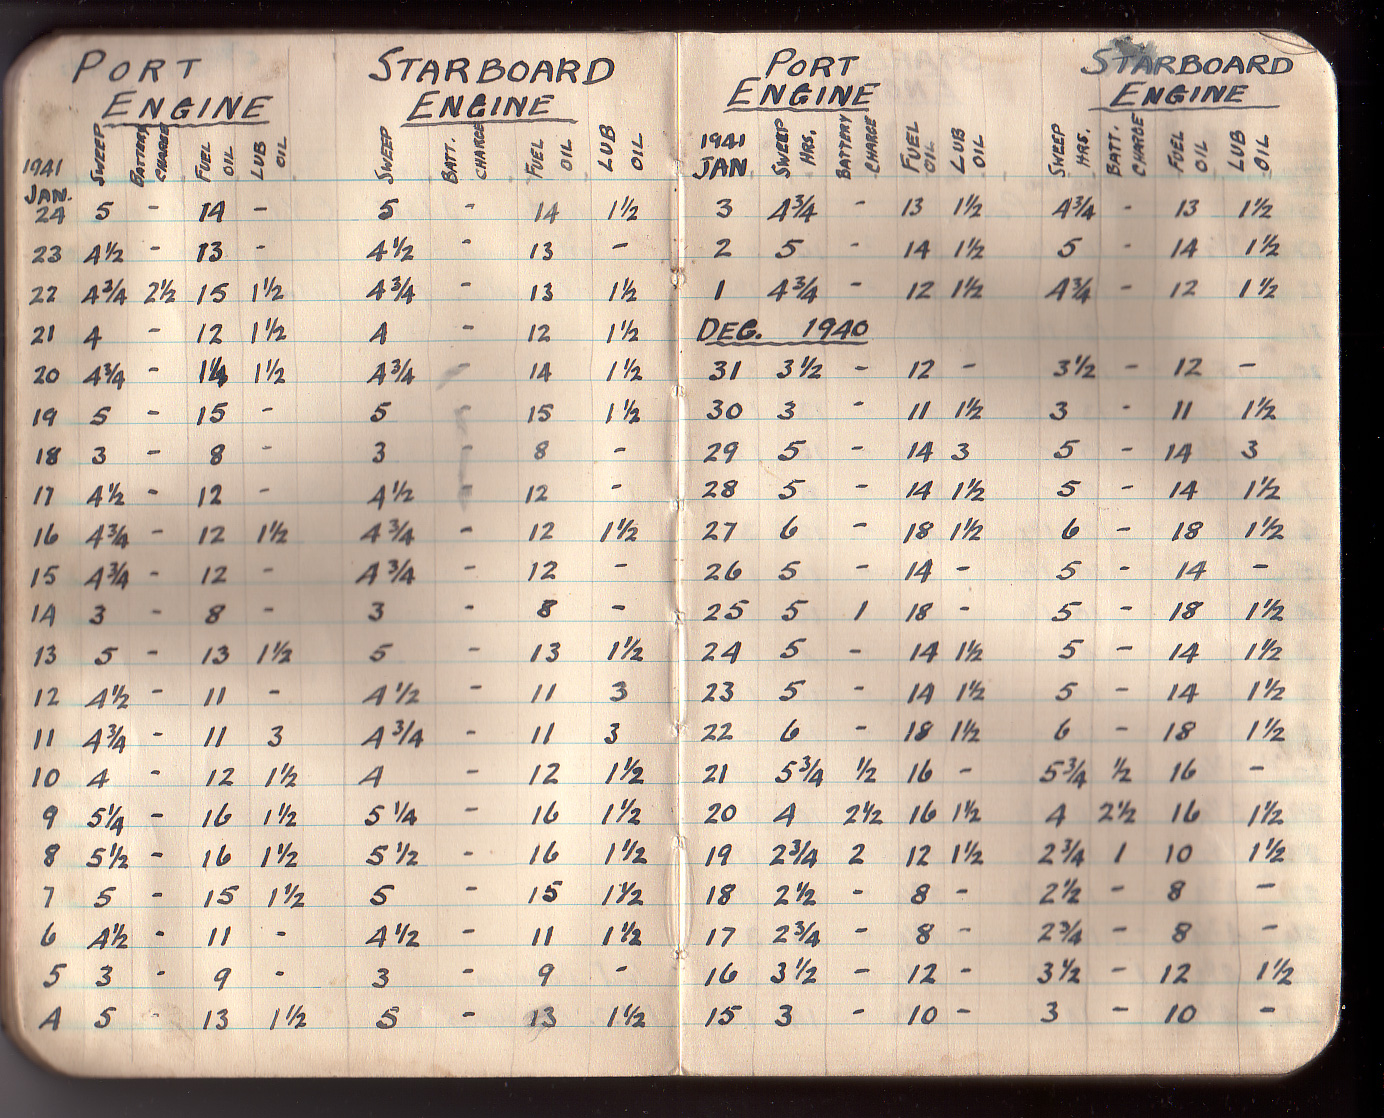 PORT ENGINE STARBOARD ENGINE
1941 JAN. SWEEP BATTERY CHARGE FUEL OIL LUB OIL SWEEP BATT. CHARGE FUEL OIL LUB OIL
24 5 - 14 - 5 - 14 1½
23 4½ - 13 - 4½ - 13 -
22 4¾ 2½ 15 1½ 4¾ - 13 1½
21 4 - 12 1½ 4 - 12 1½
20 4¾ - 14 1½ 4¾ - 14 1½
19 5 - 15 - 5 - 15 1½
18 3 - 8 - 3 - 8 -
17 4½ - 12 - 4½ - 12 -
16 4¾ - 12 1½ 4¾ - 12 1½
15 4¾ - 12 - 4¾ - 12 -
14 3 - 8 - 3 - 8 -
13 5 - 13 1½ 5 - 13 1½
12 4½ - 11 - 4½ - 11 3
11 4¾ - 11 3 4¾ - 11 3
10 4 - 12 1½ 4 - 12 1½
9 5¼ - 16 1½ 5¼ - 16 1½
8 5½ - 16 1½ 5½ - 16 1½
7 5 - 15 1½ 5 - 15 1½
6 4½ - 11 - 4½ - 11 1½
5 3 - 9 - 3 - 9 -
4 5 - 13 1½ 5 - 13 1½
PORT ENGINE STARBOARD ENGINE
1941 JAN SWEEP HRS. BATTERY CHARGE FUEL OIL LUB OIL SWEEP HRS. BATT. CHARGE FUEL OIL LUB OIL
3 4¾ - 13 1½ 4¾ - 13 1½
2 5 - 14 1½ 5 - 14 1½
1 4¾ - 12 1½ 4¾ - 12 1½
DEC. 1940
31 3½ - 12 - 3½ - 12 -
30 3 - 11 1½ 3 - 11 1½
29 5 - 14 3 5 - 14 3
28 5 - 14 1½ 5 - 14 1½
27 6 - 18 1½ 6 - 18 1½
26 5 - 14 - 5 - 14 -
25 5 1 18 - 5 - 18 1½
24 5 - 14 1½ 5 - 14 1½
23 5 - 14 1½ 5 - 14 1½
22 6 - 18 1½ 6 - 18 1½
21 5¾ ½ 16 - 5¾ ½ 16 -
20 4 2½ 16 1½ 4 2½ 16 1½
19 2¾ 2 12 1½ 2¾ 1 10 1½
18 2½ - 8 - 2½ - 8 -
17 2¾ - 8 - 2¾ - 8 -
16 3½ - 12 - 3½ - 12 1½
15 3 - 10 - 3 - 10 -